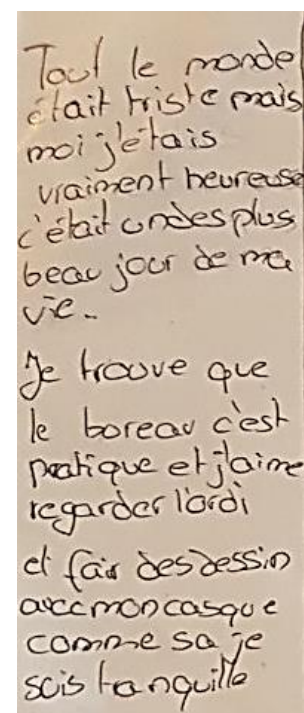 Tout le monde
était triste mais
moi j'étais
vraiment heureuse
c'était un des plus
beau jour de ma
vie.
Je trouve que
le boreau c'est
pratique et j'aime
regarder l'ordi
et fair des dessin
avec mon casque
comme sa je
suis tranquille